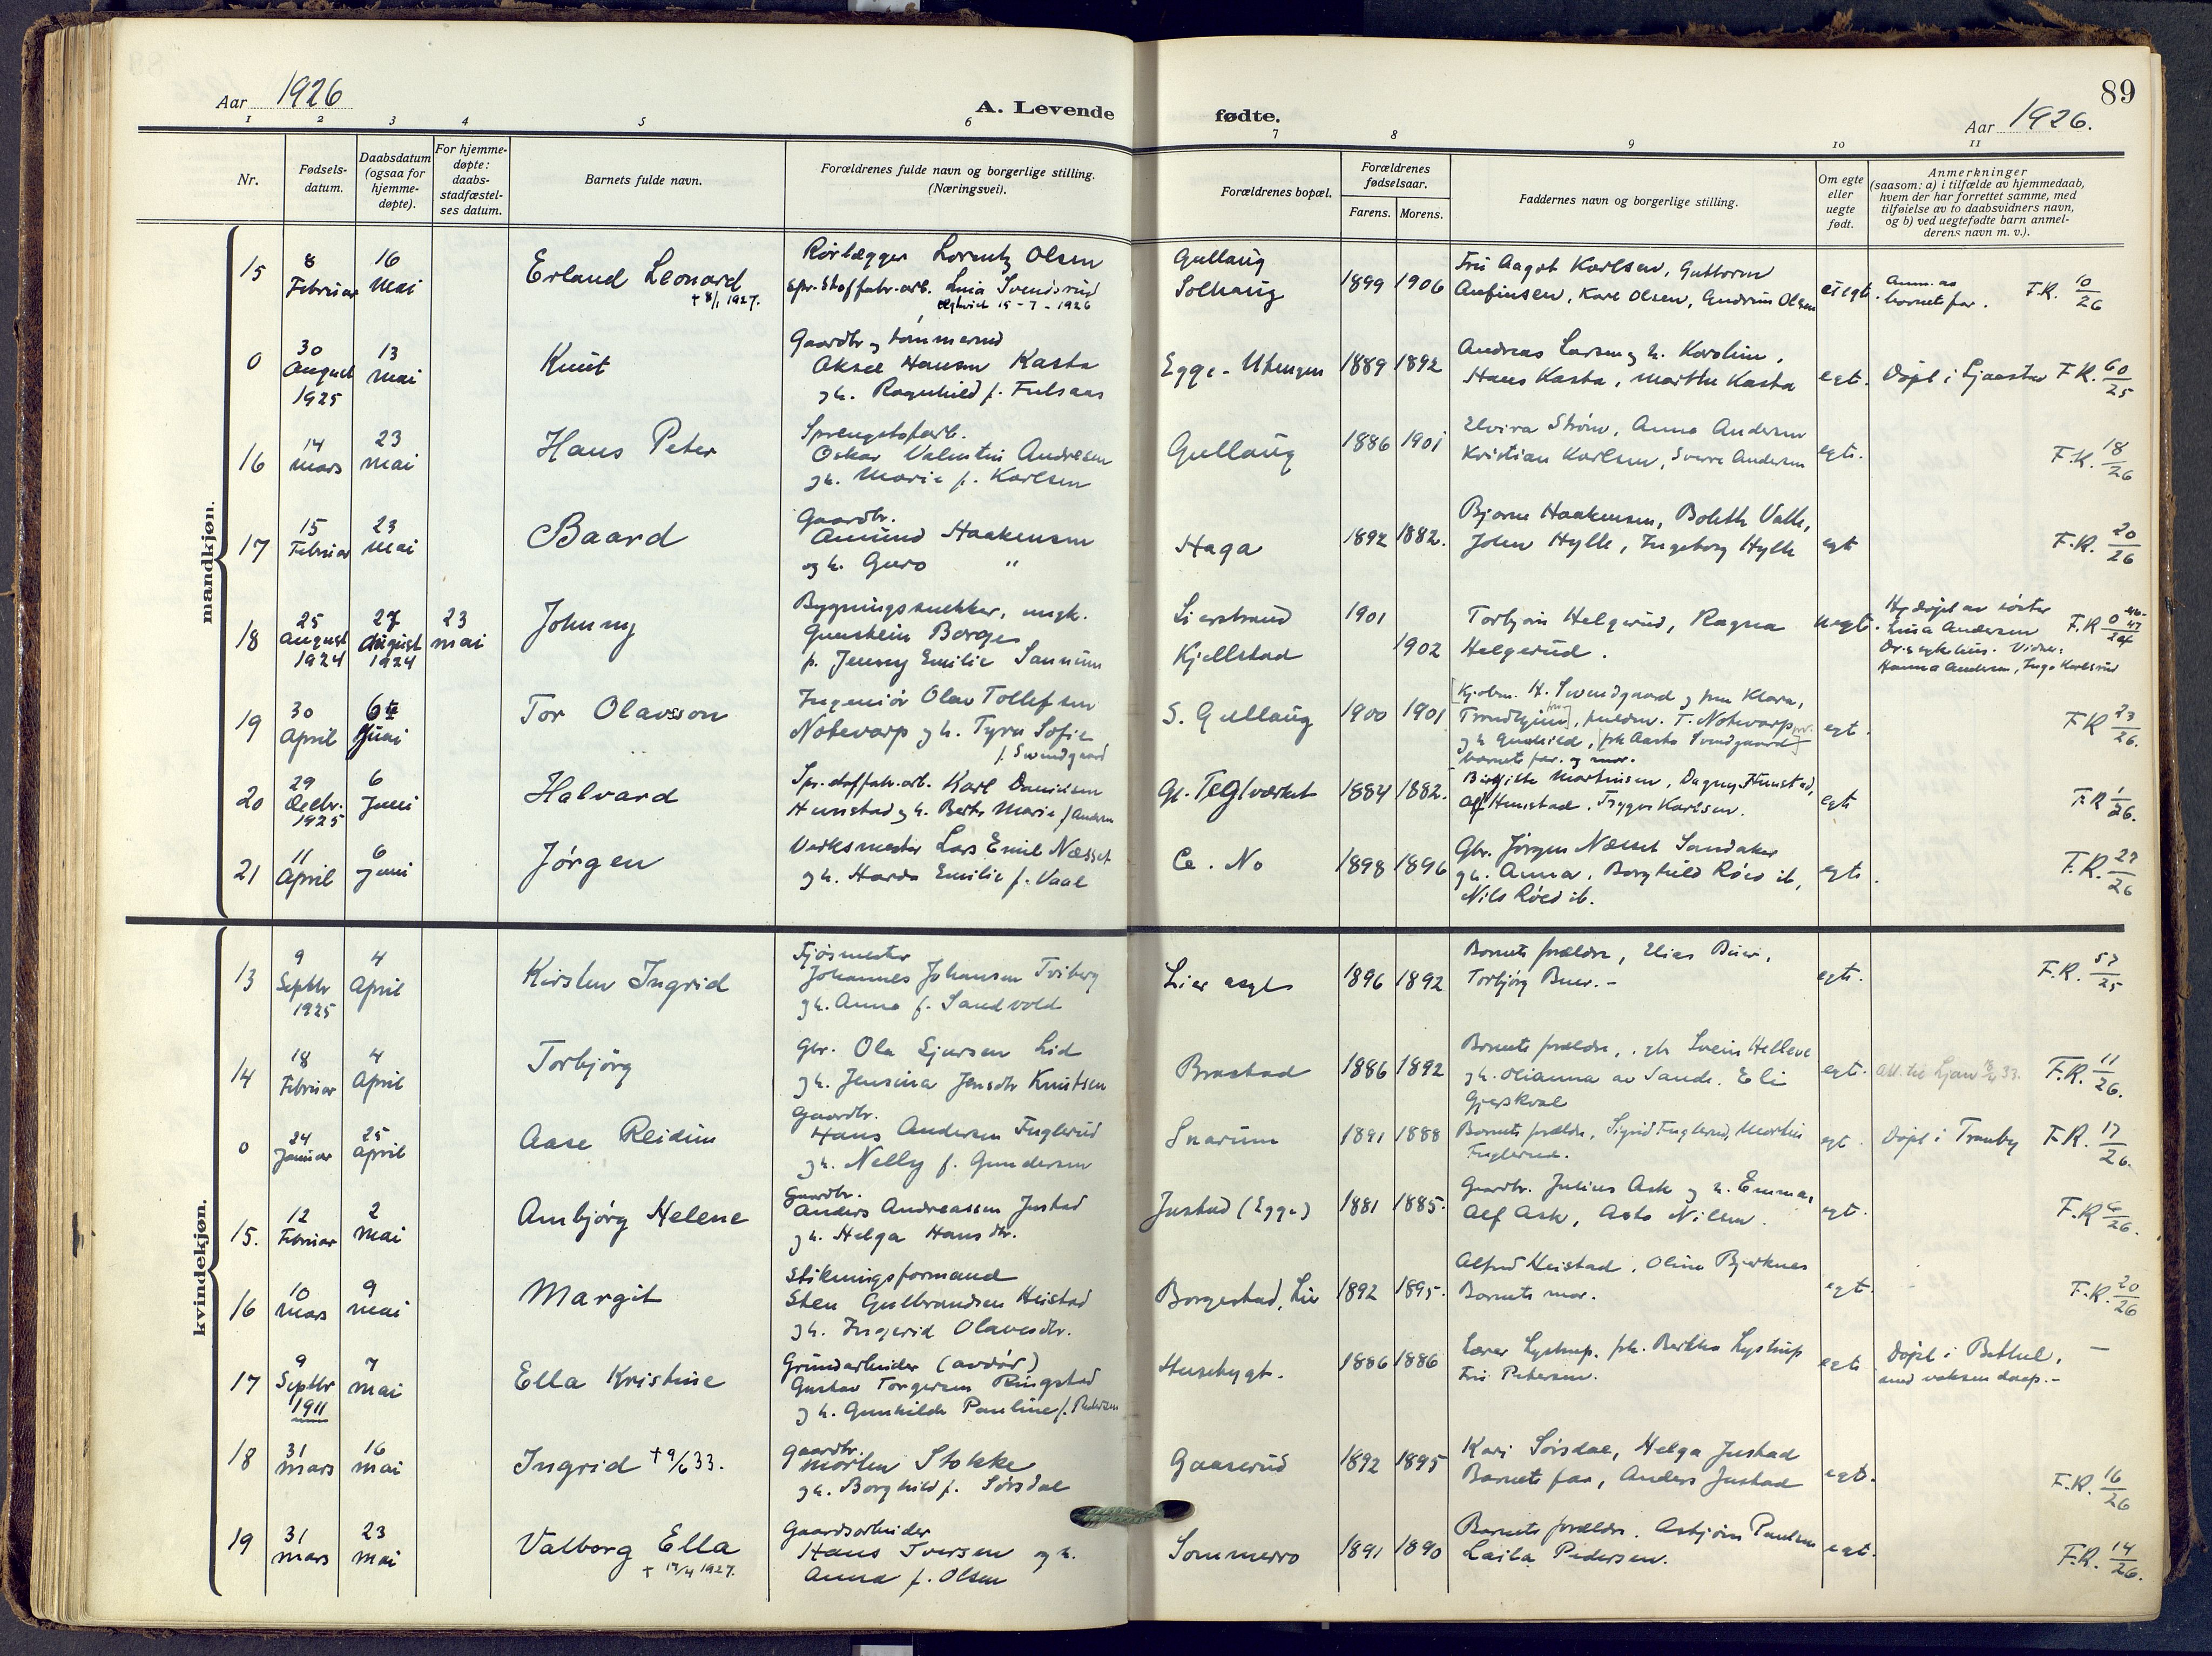 89
Aar 1926
A. Levende
fødte.
Aar 1926.
1 2 3 4 5 6 7 8 9 10 11
Nr.
Fødsels-
datum.
Daabsdatum
(ogsaa for
hjemme-
døpte).
For hjemme-
døpte:
daabs-
stadfæstel-
ses datum.
Barnets fulde navn.
Forældrenes fulde navn og borgerlige stilling.
(Næringsvei).
Forældrenes bopæl.
Forældrenes
fødselsaar.
Farens. Morens.
Faddernes navn og borgerlige stilling.
Om egte
eller
uegte
født.
Anmerkninger
(saasom: a) i tilfælde av hjemmedaab,
hvem der har forrettet samme, med
tilføielse av to daabsvidners navn,
og b) ved uegtefødte barn anmel-
derens navn m. v.).
mandkjøn.
15
8
Februar
16
Mai
Erland Leonard
+ 8/1 1927.
Rørlægger Lorentz Olsen
Spr.stoffabr.arb. Svendsrud
15-7-1926
Gullaug
Solhaug
1899 1906
Fru Aagot Karlsen, Guttorm
Anfinsen, Kare Olsen, Gudrun Olsen
barnets far.
F.R. 10/26
0
30
August
1925
13
Mai
Knut
Aksel Hansen Kasta
og h. Ragnhild f.
Egge -
1889 1892
Andreas Larsen og h. Karoline,
Hans Kasta, Marthe Kasta
egt.
Døpt i
F.R. 60/25
16
14
Mars
23
Mai
Hans Peter
Oskar Valentin Andresen
og h. Marie f. Karlsen
Gullaug
1886 1901
Elvira Strøm, Anna Andersen
Kristian Karlsen, Sverre Andersen
egt.
F.R. 18/26
17
15
Februar
23
Mai
Baard
Gaardbr.
Amund Haakensen
og h. Guro "
Haga
1892 1882.
Bjarne Haakensen, Boleth Valle,
John Hylle, Ingeborg Hylle
egt
F.R. 20/26
18
25
August
1924
27
August
1924
23
mai
Johnny
Bygningssnekker, ungk.
Gunstein Borges
p. Jenny Emilie Sannum
Lierstrand
Kjellstad
1901
1902
Torbjørn Helgerud, Ragna
Helgerud.
uegt.
Hj.døpt av søster
Andersen
Vidner:
Hanna Andersen, Inga Karlsrud
F.R.
19
30
April
6te
Juni
Tor Olavsson
Ingeniør Olav Tollefsen
Notevarp og h. Tyra Sofie
f. Svendgaard
S. Gullaug
1900 1901
H. Svendgaard og fru Klara,
T. Notevarp
og h. Gunhild, frk Aasta Svendgaard
barnets far og mor.
egt.
F.R 23/26.
20
29
Decbr.
1925
6
Juni
Halvard
Spr.stoffabr.arb. Karl Danielsen
Hunstad og h. Berte Marie f. Andersen
Gl. Teglværket
1884 1882.
Birgithe Marthinsen, Dagny Hunstad,
Alf Hunstad, Trygve Karlsen.
egt
F.R 1/26.
21
11
April
6
Juni
Jørgen
Verksmester Lars Emil Næsset
og h. Harda Emilie f. Vaal
Ce. No
1898 1896
Gbr. Jørgen Næsset Sandaker
og h. Anna, Borghild Røed ib,
Nils Røed ib.
egt.
F.R. 27/26
kvindekjøn.
13
9
Septbr
1925
4
April
Kirsten Ingrid
Fjøsmester
Johannes Johansen Tviberg
og h. Anna f. Sandvold
Lier asyl
1896 1892
Barnets forældre, Elias Buer,
Torbjørg Buer. -
egt.
F.R. 57/25
14
18
Februar
4
April
Torbjørg
Gbr. Ola Sjursen Lid
og h. Jensina Jensdtr Knutsen
Brastad
1886 1892
Barnets forældre, Svein Helleve
og h. Olianna av Sande. Eli
Gjerskval
egt.
F.R. 11/26.
0
24
Januar
25
April
Aase Reidun
Gaardbr.
Hans Andersen Fuglerud
og h. Nelly f. Gundersen
Snarum
1891 1888
Barnets forældre, Sigrid Fuglerud, Martin
Fuglerud.
egt.
Døpt i Tranby
F.R. 17/26.
15.
12
Februar
2
Mai
Ambjørg Helene
Gaardbr.
Anders Andreassen Justad
og h. Helga Hansdtr.
Justad (Egge)
1881 1885.
Gaardbr. Julius Ask og h. Emma,
Alf Ask, Asta Nilsen.
egt.
F.R 6/26.
16
10
Mars
9
Mai
Margit
Stikningsformand
Sten Gulbrandsen Heistad
og h. Ingerid Olavesdtr.
Borgestad, Lier
1892 1895.
Alfred Heistad, Oline Bjerknes
Barnets mor.
egt.
F.R. 20/26
17
9
Septbr
1911
7
Mai
Ella Kristine
Grundarbeider (avdør)
Gustav Torgersen Ringstad
og h. Gunhilde Pauline f. Pedersen
Husebygt.
1886 1886
Lærer Lystrup, frk. Bertha Lystrup
Fru Petersen.
egt.
Døpt i Bethel, -
med voksen daap. -
18
31
Mars
16
Mai
Ingrid + 9/6 33.
Gaardbr.
Morten Stokke
og h. Borghild f. Sørsdal
Gaaserud
1892 1895
Kari Sørsdal, Helga Justad
Barnets far, Anders Justad
egt.
F.R. 16/26
19
31
Mars
23
Mai
Valborg Ella
+ 17/4 1927.
Gaardsarbeider
Hans Iversen og h.
Anna f. Olsen
Sommerro
1891 1890
Barnets forældre. Asbjørn Paulsen
Laila Pedersen.
egt.
F.R. 14/26.